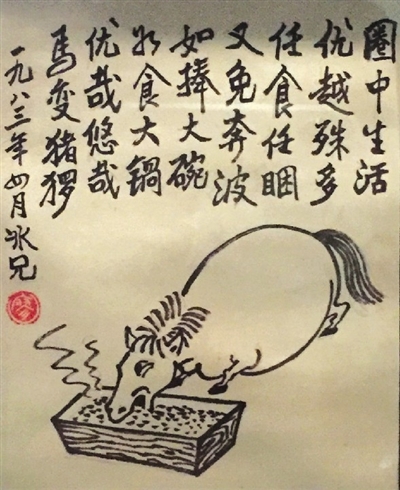 圈中生活
优越殊多
任食任睏
又免奔波
如捧大碗
似食大鍋
优哉悠哉
馬变猪猡
一九八三年四月冰兄